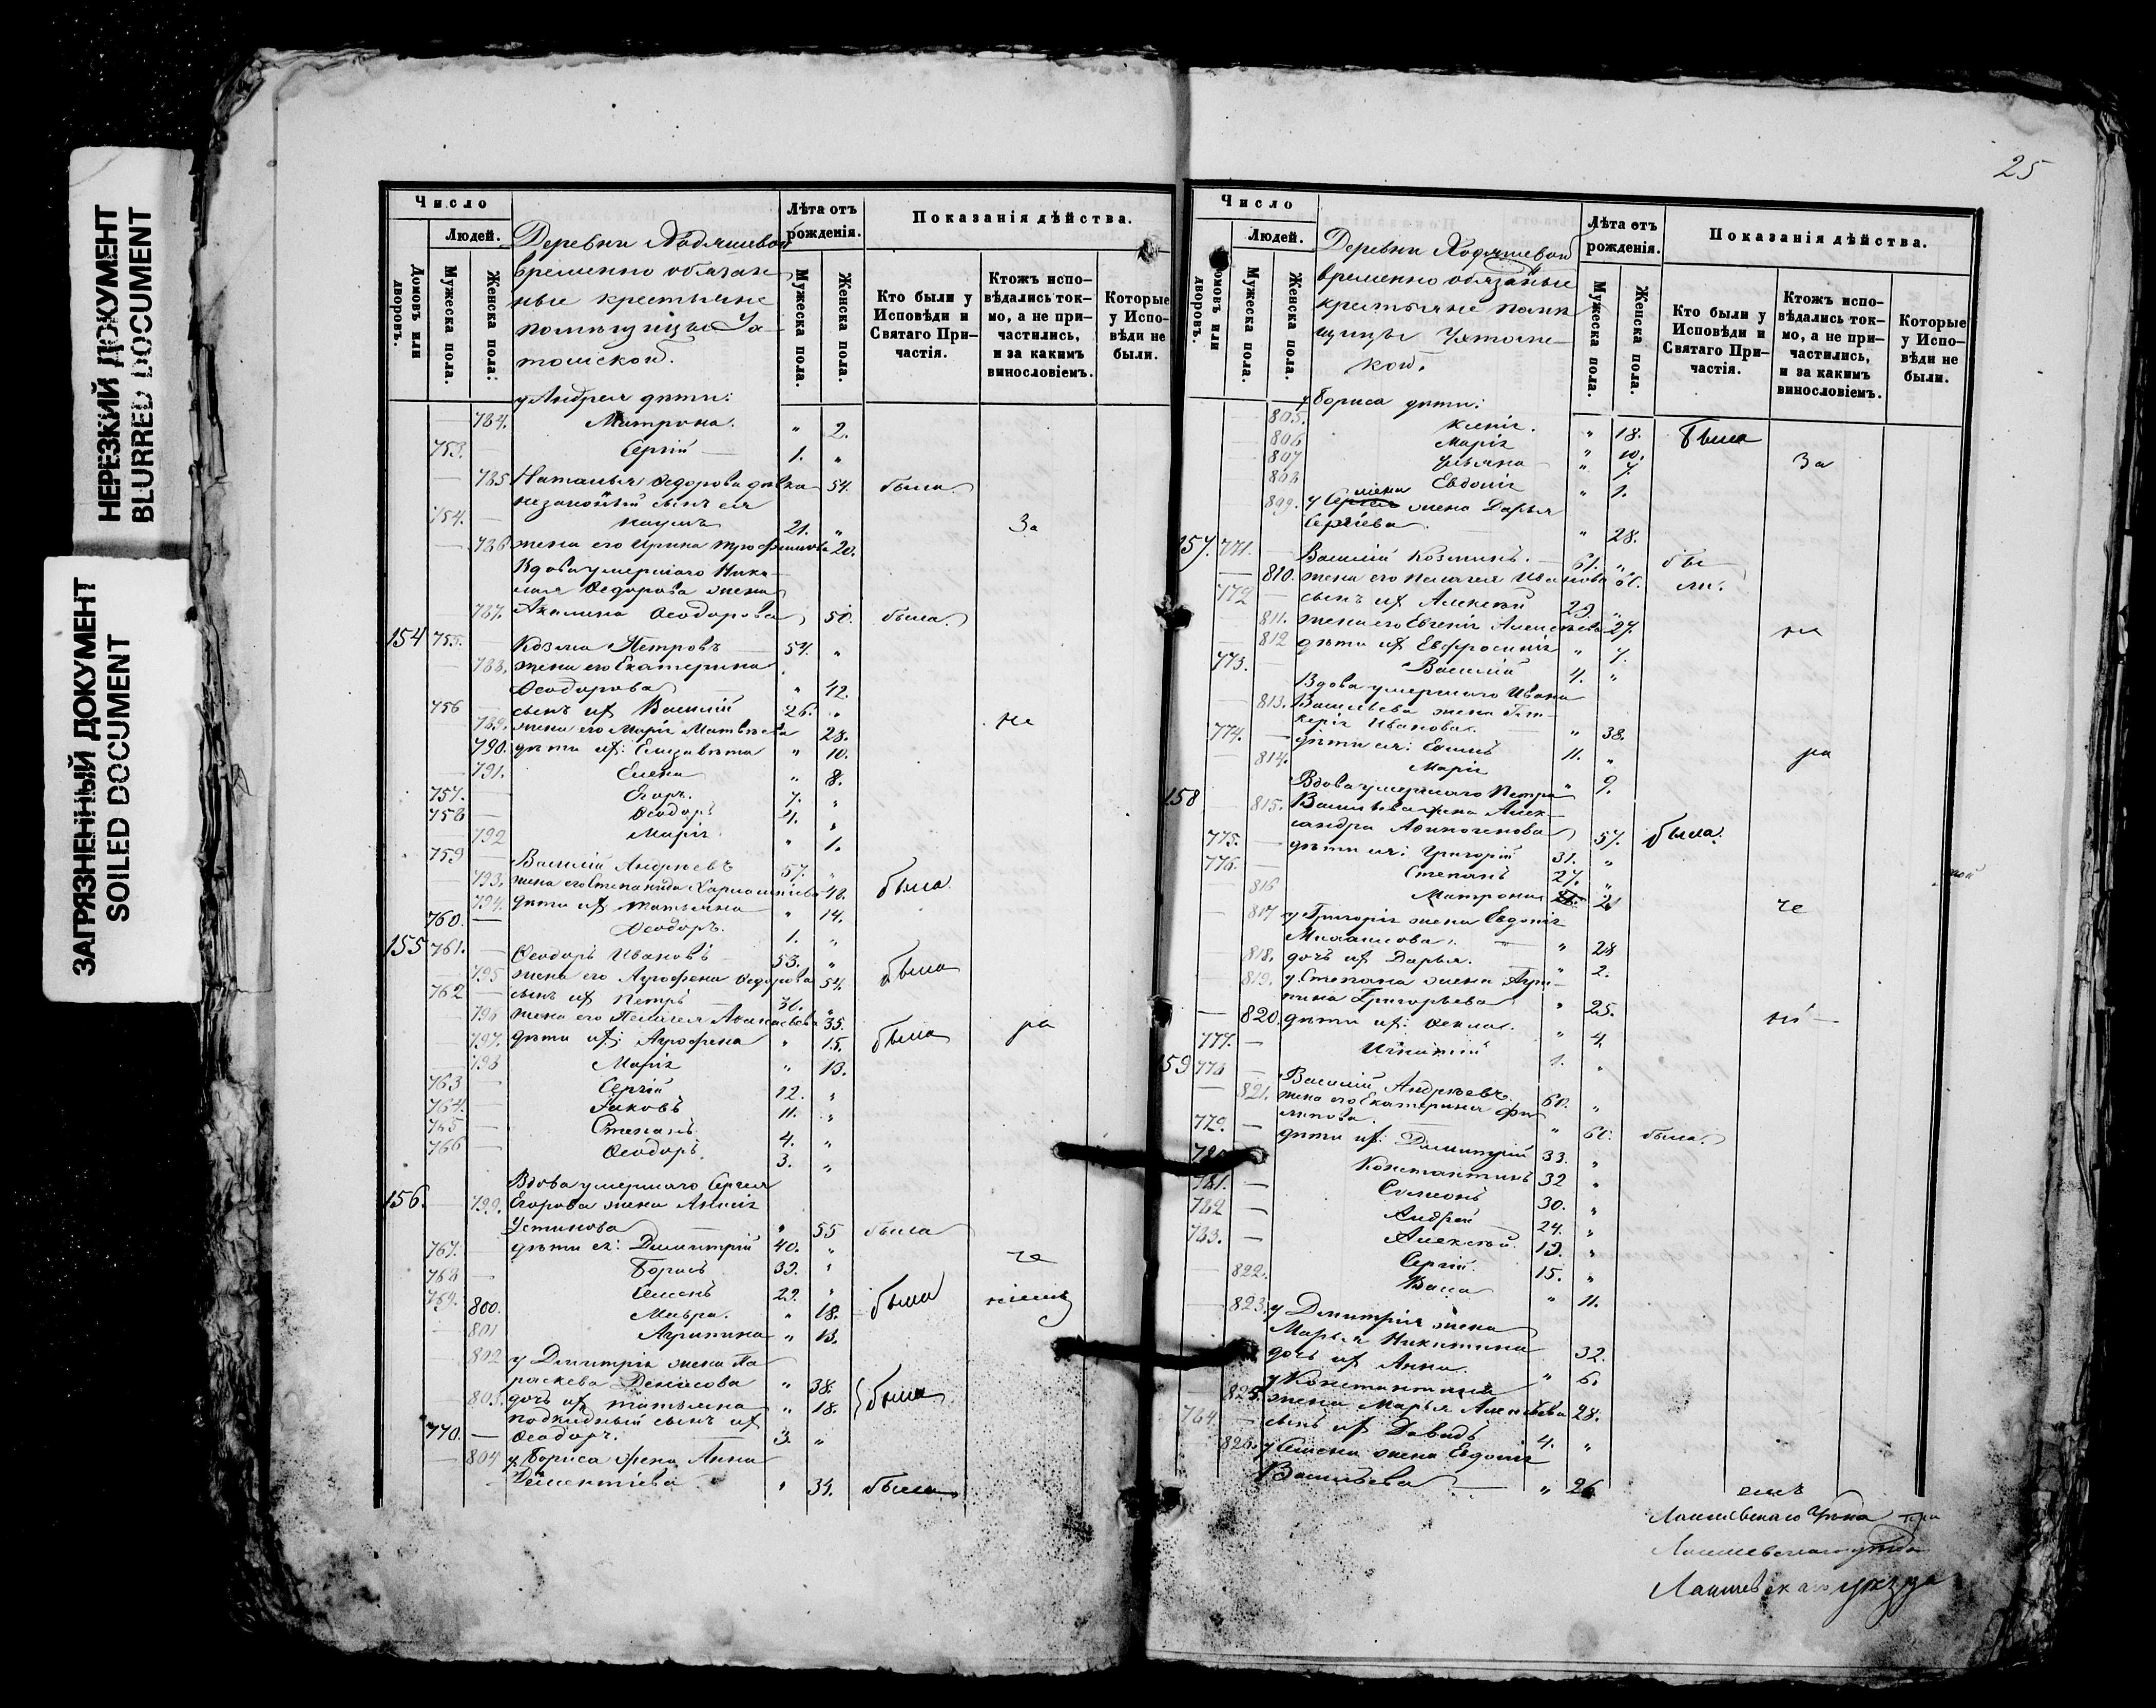 НЕРЕЗКИЙ ДОКУМЕНТ
BLURRED DOCUMENT
ЗАГРЯЗНЕННЫЙ ДОКУМЕНТ
SOILED DOCUMENT
Число
Людей.
Домовъ или дворовъ.
Мужеска пола.
Женска пола.
Деревни Ходяшевой
временно обязан
ные крестьяне
помѣщицы
Лѣта отъ рожденія.
Мужеска пола.
Женска пола.
Показанія дѣйства.
Кто были у Исповѣди и Святаго При-частія.
Ктожъ испо-вѣдались ток-мо, а не при-частились, и за какимъ винословіемъ.
Которые у Испо-вѣди не были.
у Андрея дѣти:
784. Матрона. " 2.
753. Сергій 1. "
785 Наталья Ѳедорова 54. была
незаконный сынъ ея
754. Наумъ 21. " За
786 жена его Ирина Трофимова 20.
Вдова умершаго Нико-
лая Ѳедорова жена
787. Акилина Ѳеодорова 50. была
154 755. Козма Петровъ 54. "
788. жена его Екатерина
Ѳеодорова " 42.
756 сынъ их Василій 26. "
789. жена его Марія Матвѣева 28. не
790. дѣти их: Елизавета " 10.
791. Елена " 8.
757. Егоръ. 7. "
758 Ѳеодоръ 4. "
792 Марія " 1.
759 Василій Андреевъ 57. "
793. жена его Степанида 48. была
794. дѣти их Татьяна " 14.
760. Ѳеодоръ. 1. "
155 761. Ѳеодоръ Ивановъ 53. "
795 жена его Агрофена Ѳедорова 54. была
762 сынъ их Петръ 36. "
796 жена его Пелагея 35. ра
797. дѣти их: Агрофена " 15. была
798 Марія " 13.
763 Сергій 12. "
764. Іаковъ 11. "
765 Степанъ. 4. "
766 Ѳеодоръ. 3. "
Вдова умершаго Сергея
156. 799. Егорова жена Анисія
Устинова " 55 была
767. дѣти ея: Димитрій 40. " че
768 Борисъ 32. "
769. Семенъ 29. "
800. Мавра. " 18. была
801 Агрипина " 13.
802 у Димитрія жена Па
раскева Денисова " 38.
803. дочь их Татьяна " 18. была
подкидный сынъ их
770. Ѳеодоръ. 3. "
804 у Бориса жена Анна
Дементіева " 34. была
25
Число
Людей.
Домовъ или дворовъ.
Мужеска пола.
Женска пола.
Деревни Ходяшевой
временно обязаные
крестьяне помѣ
щицы
Лѣта отъ рожденія.
Мужеска пола.
Женска пола.
Показанія дѣйства.
Кто были у Исповѣди и Святаго При-частія.
Ктожъ испо-вѣдались ток-мо, а не при-частились, и за какимъ винословіемъ.
Которые у Испо-вѣди не были.
у Бориса дѣти:
805. Ксенія. " 18. была
806 Марія " 10. За
807 Ульяна " 7.
808 Евдокія " 1.
809. у Семена жена Дарья
Сергіева " 28.
157. 771. Василій Козминъ. 61. " бы
810. жена его Пелагея Иванова ли.
772 сынъ их Алексѣй 29. "
811. жена его Евгенія Алексѣева 27. не
812 дѣти их Евфросинія " 7.
773. Василій 4. "
Вдова умершаго Ивана
813. Васильева жена Гли-
керія Иванова. " 38.
774. дѣти ея: 11. " ра
814. Марія " 9.
Вдова умершаго Петра
158 815. Васильева жена Алек-
сандра Афиногенова 57. была.
775. дѣти ея: Григорій 31. "
776. Степанъ 27. "
816 Матрона 21 че
817 у Григорія жена Евдокія
Михаилова. " 28
818. дочь их Дарья. " 2.
819. у Степана жена Агри-
пина Григорьева " 25.
820. дѣти их: Ѳекла. " 4.
777. Игнатій 1. "
159 778 Василій Андреевъ. 60. "
821. жена его Екатерина Фи
липова " 60. была
779. дѣти их: Димитрій 33. "
780. Константинъ 32 "
781. Симеонъ 30. "
782 Андрей 24. "
783. Алексѣй. 19. "
Сергій. 15. "
822. Васса " 11.
823. у Димитрія жена
Марья Никитина 32.
дочь их Анна. " 6.
у Константина
825. жена Марья Алексѣева 28.
784. сынъ их Давидъ 4. "
826. у Семена жена Евдокія
Васильева " 26
Лаишевскаго уѣзда
Лаишевскаго уѣзда